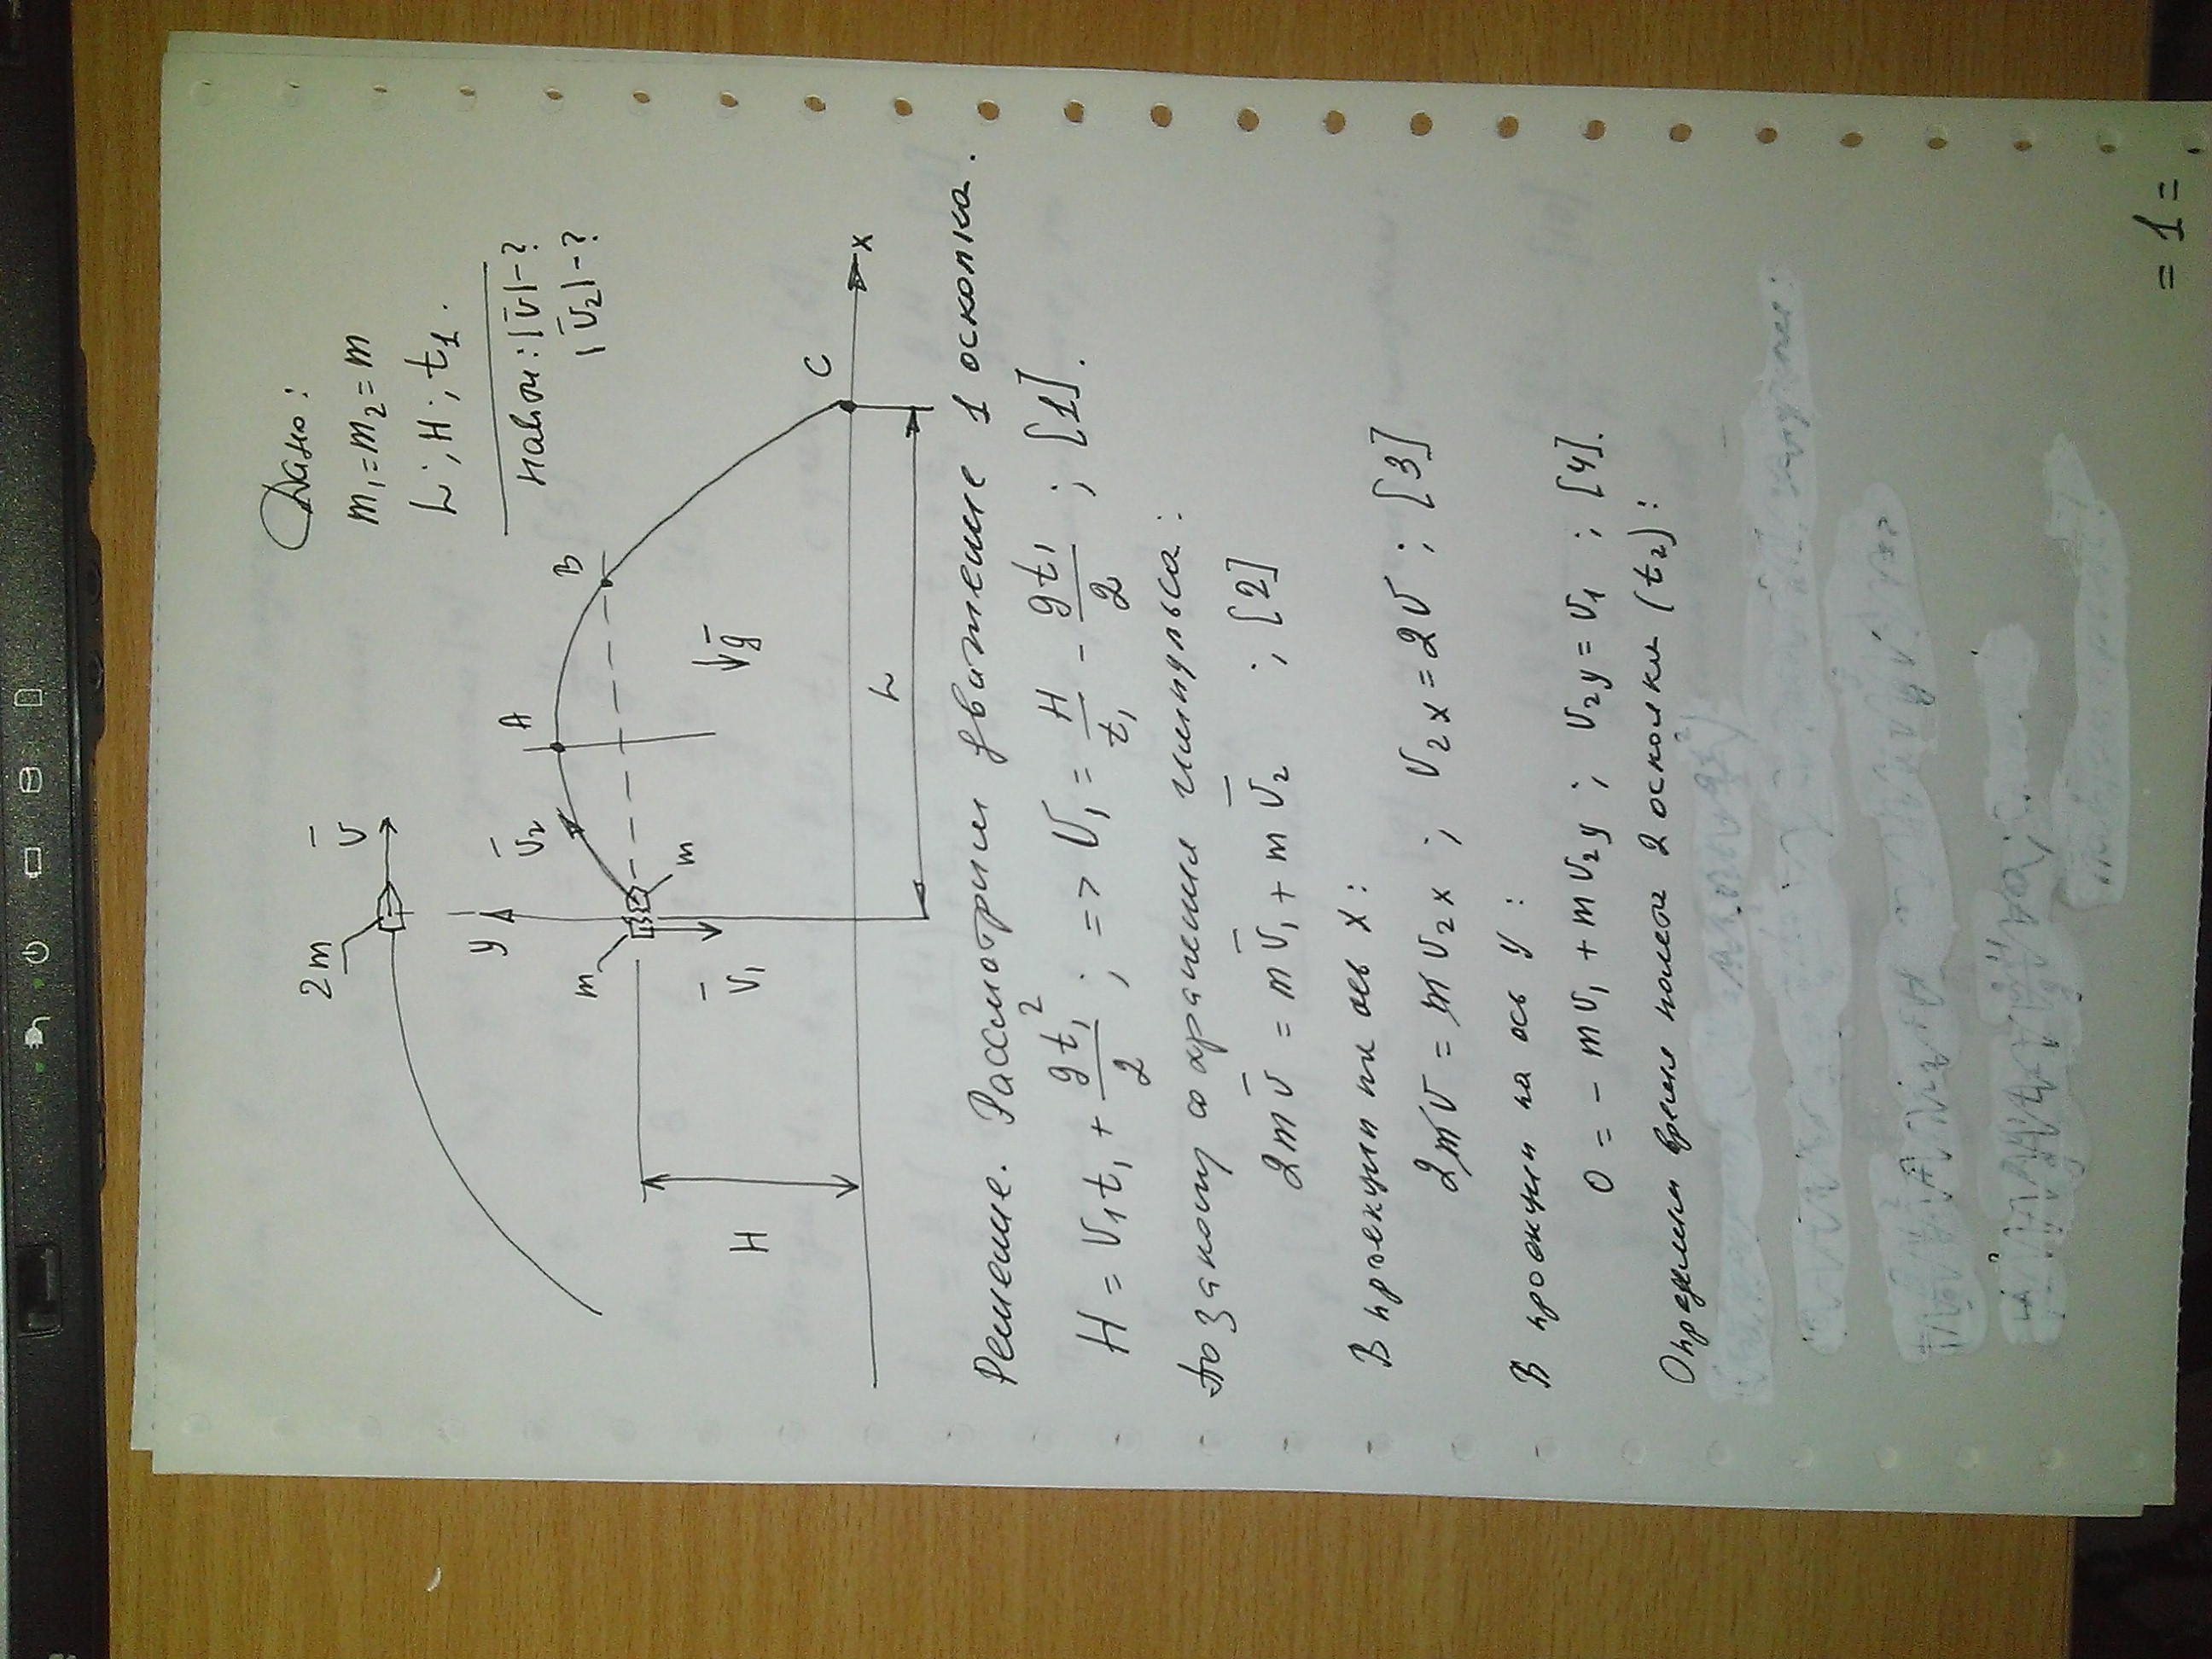 Дано:
m₁=m₂=m
L; H; t₁.
Найти: |v̄|-?
|v̄₂|-?
2m
v̄
y
v̄₂
A
B
m
m
v̄₁
ḡ
H
C
x
L
Решение. Рассмотрим движение 1 осколка.
H = v₁t₁ + gt₁²/2 ; => v₁ = H/t₁ - gt₁/2 ; [1].
По закону сохранения импульса:
2mv̄ = mv̄₁ + mv̄₂ ; [2]
В проекции на ось x:
2mv = mv₂x ; v₂x = 2v ; [3]
В проекции на ось y:
0 = - mv₁ + mv₂y ; v₂y = v₁ ; [4].
Определим время полета 2 осколка (t₂):
= 1 =